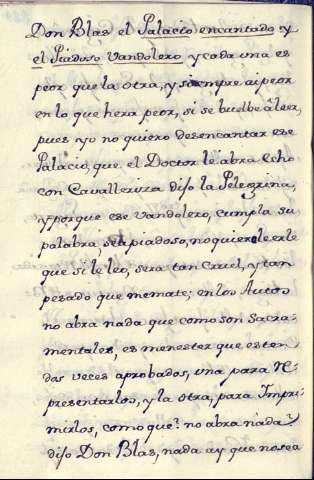 Don Blas el Palacio encantado y
el Piadoso Vandolero, y cada una es
peor que la otra, y siempre ai peor
en lo que hera peor, si se buelbe á leer,
pues yo no quiero desencantar ese
Palacio, que el Doctor le abra echo
con Cavalleriza dijo la Pelegrina,
y porque ese Vandolero, cumpla su
palabra sea piadoso, no quiero leerle
que si le leo, sera tan cruel, y tan
pesado que me mate; en los Autos
no abra nada que como son Sacra-
mentales, es menester que esten
dos veces aprobados, una para Re
presentarlos, y la otra, para Impri-
mirlos, como que? no abra nada?
dijo Don Blas, nada ay que no sea